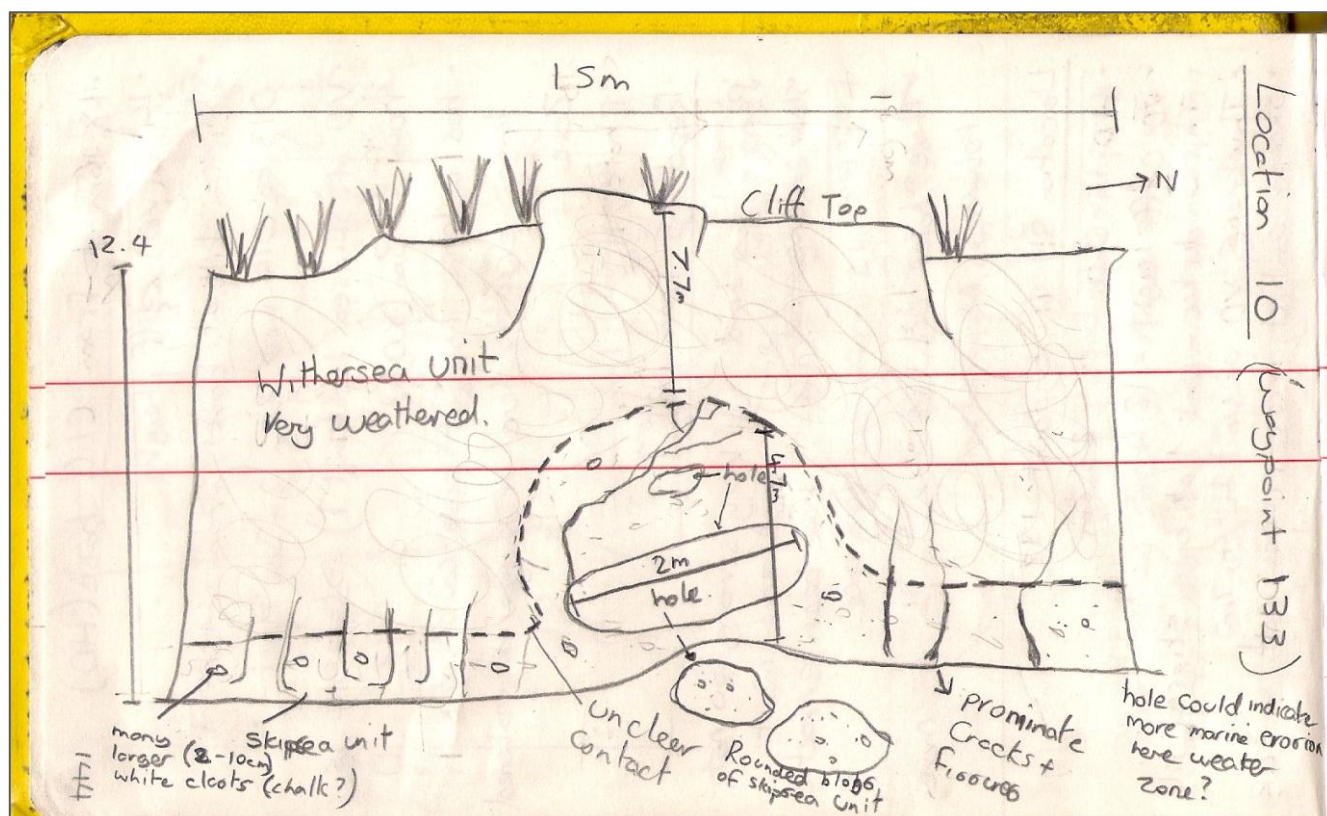 15m
Location 10 (waypoint b33)
→ N
Cliff Top
12.4
7.7m
Withersea unit
Very weathered.
hole
4.7m
2m
hole.
many
larger (2-10cm)
white clasts (chalk?)
skipsea unit
unclear
contact
Rounded blobs
of skipsea unit
prominate
Cracks +
fissures
hole could indicate
more marine erosion
here weaker
zone?